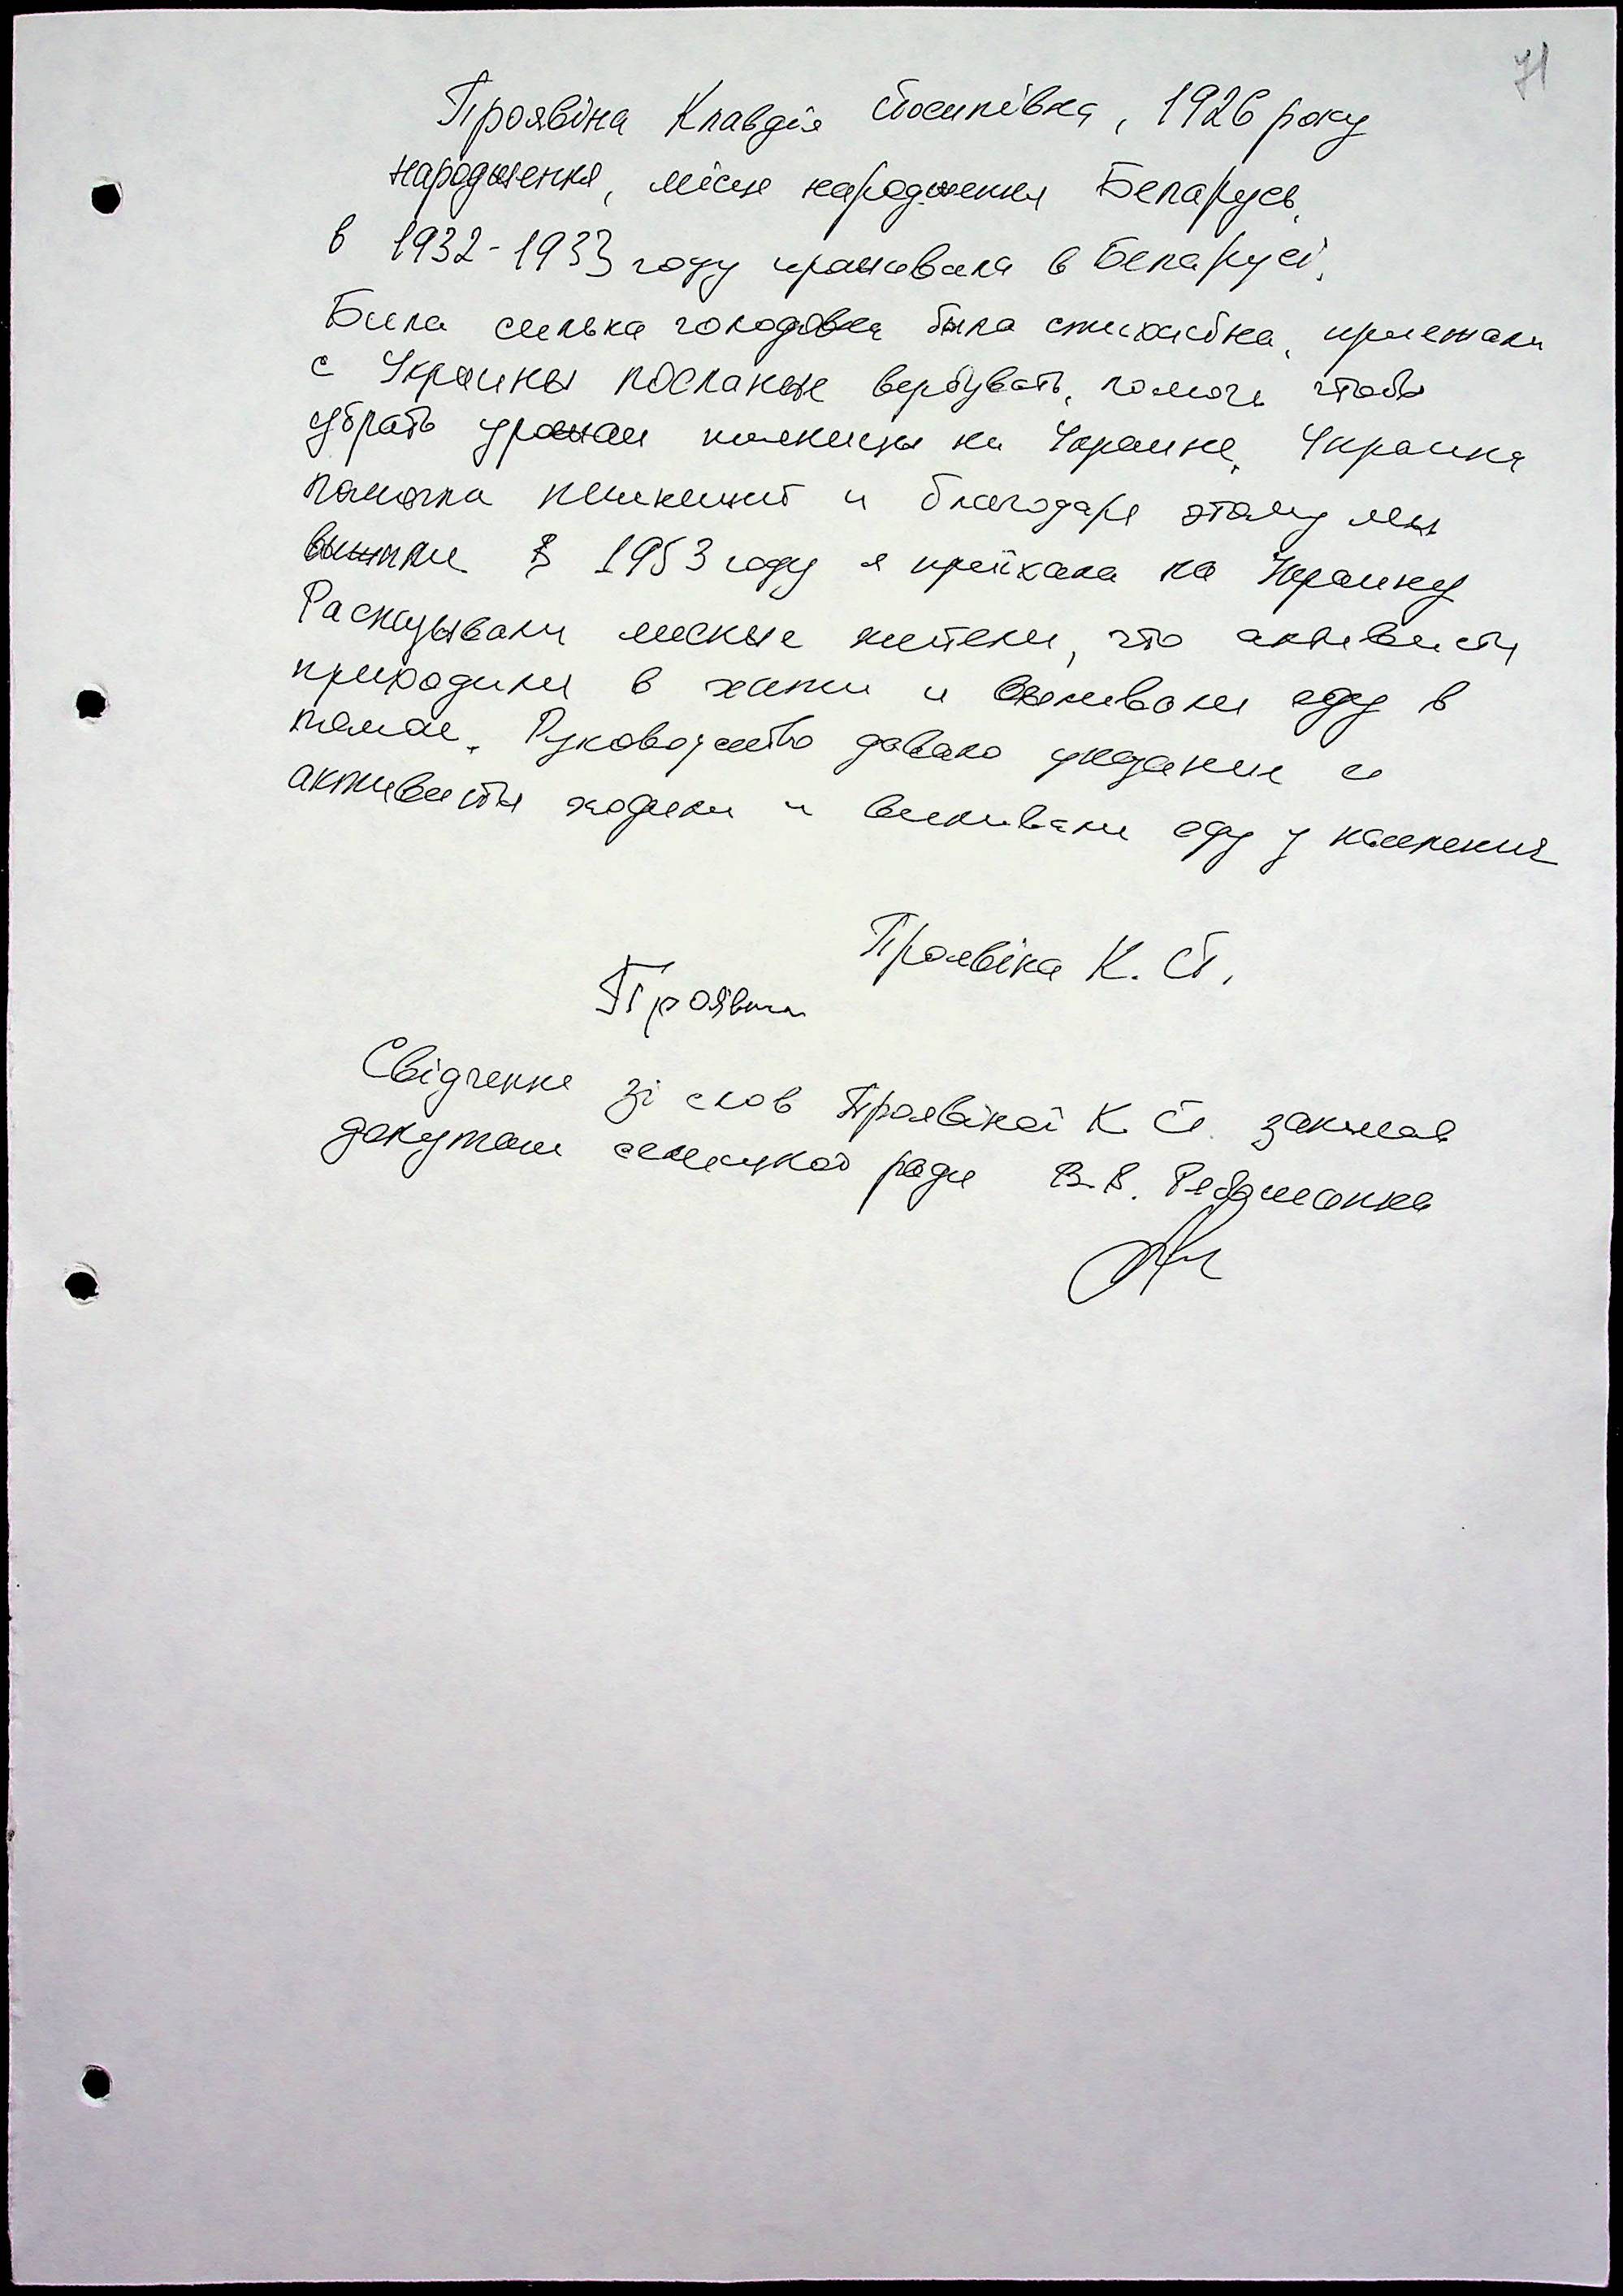 71
Проявіна Клавдія Йосипівна, 1926 року
народження, місце народження Беларусь,
в 1932-1933 году праживала в Беларусі.
Била сильна голодовка была стихийна, приежали
с Украины посланые вербувать, помочь чтобы
убрать урожай пшеницы на Украине. Украина
помогла пшеницей и благодаря этому мы
выжили В 1953 году я приїхала на Украину
Расказывали месные жители, что активисты
приходили в хаты и выливали еду в
помои. Руководство давало указание и
активисты ходили и выливали еду у населения
Проявіна К. Й.
Проявин
Свідчення зі слов Проявіной К. Й. записав
депутат селищной ради В.В.